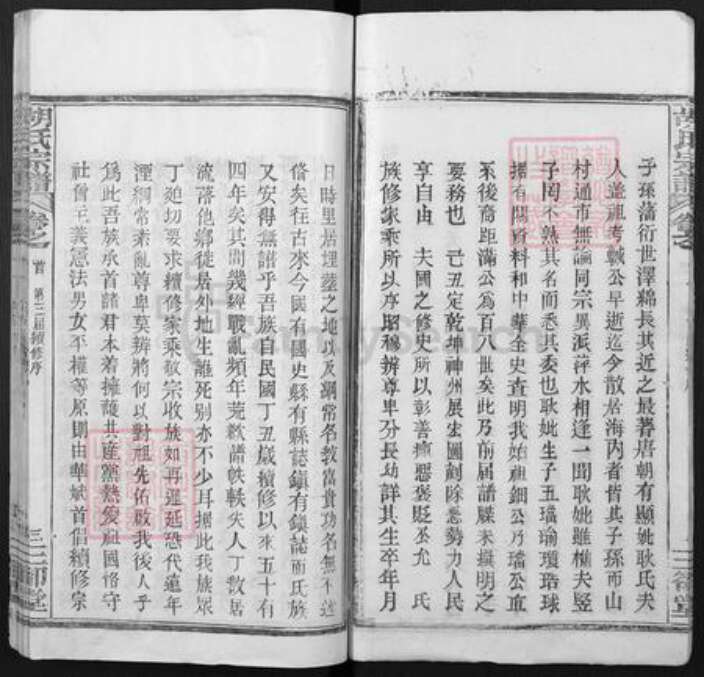 子孫蕃衍世澤綿長其近之最著唐朝有顯妣耿氏夫
人遙祖考戩公早逝迄今散居海內者皆其子孫而山
村通市無論同宗異派萍水相逢一聞耿妣雖樵夫豎
子罔不熟其名而悉其委也耿妣生子五璫瑜瓊珞球
據有關資料和中華全史查明我始祖鈿公乃璫公直
系後裔距滿公為百八世矣此乃前屆譜牒未塡明之
要務也 己丑定乾坤神州展宏圖剷除惡勢力人民
享自由 夫國之修史所以彰善癉惡褒貶至允 氏
族修家乘所以序昭穆辨尊卑分長幼詳其生卒年月
日時里居埋塟之地以及綱常名敎富貴功名無不述
偹矣往古來今國有國史縣有縣誌鎮有鎮誌而氏族
又安得無譜乎吾族自民國丁丑歲續修以來五十有
四年矣其間幾經戰亂頻年荒歉譜帙軼失人丁散居
流落他鄉徙居外地生離死別亦不少耳據此我族眾
丁廹切要求續修家乘敬宗收族如再遲延恐代遠年
湮綱常紊亂尊卑莫辨將何以對祖先佑啟我後人乎
爲此吾族承首諸君本着擁護共產黨熱愛祖國恪守
社會主義憲法男女平權等原則由華斌首倡續修宗
胡氏宗譜
卷之
首 第三屆續修序